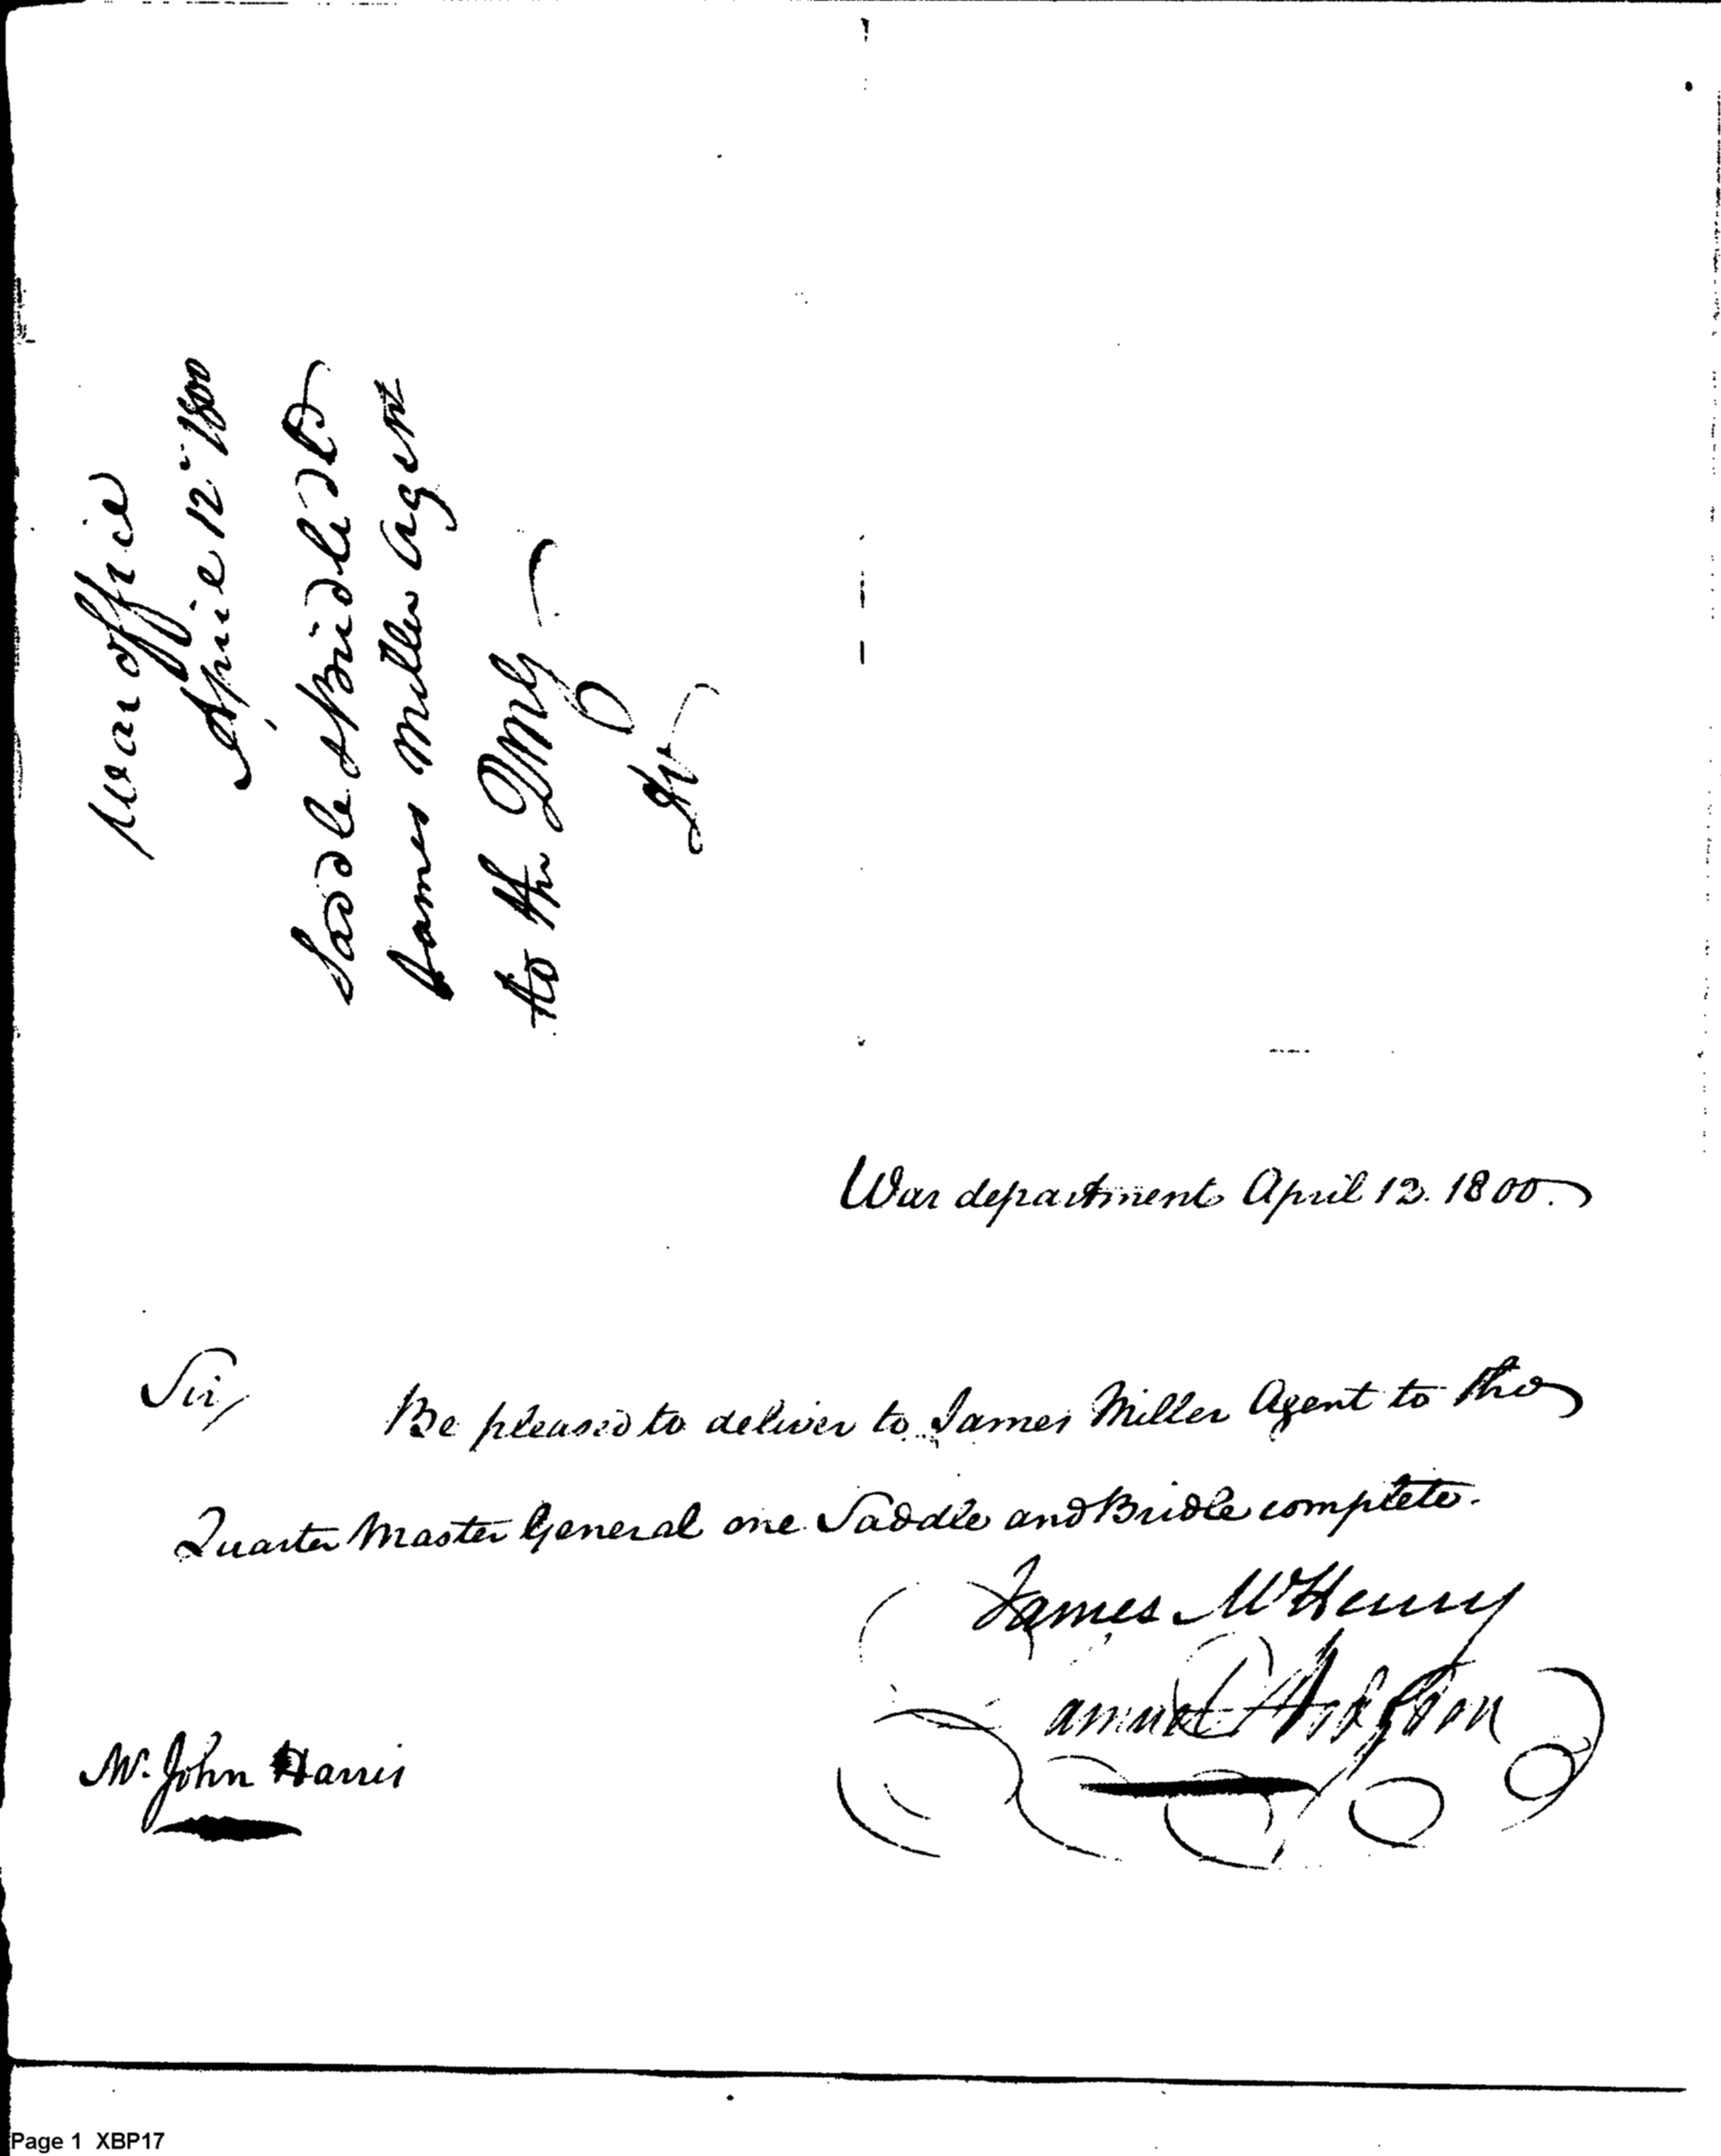 War office
April 12th 1800
Saddle & Bridle to
James Miller Agent
to the QMG
War department April 12. 1800.
Sir,
Be pleased to deliver to James Miller Agent to the
Quarter Master General one Saddle and Bridle complete.
James McHenry
Samuel Hodgdon
Mr. John Harris
Page 1 XBP17